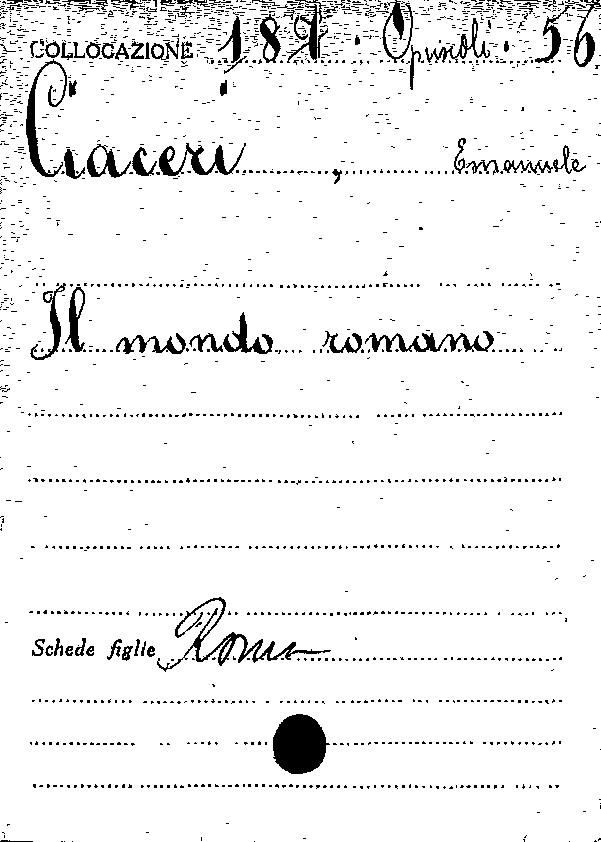 COLLOCAZIONE 187. Opuscoli. 56
Ciaceri, Emanuele
Il mondo romano
Schede figlie Roma